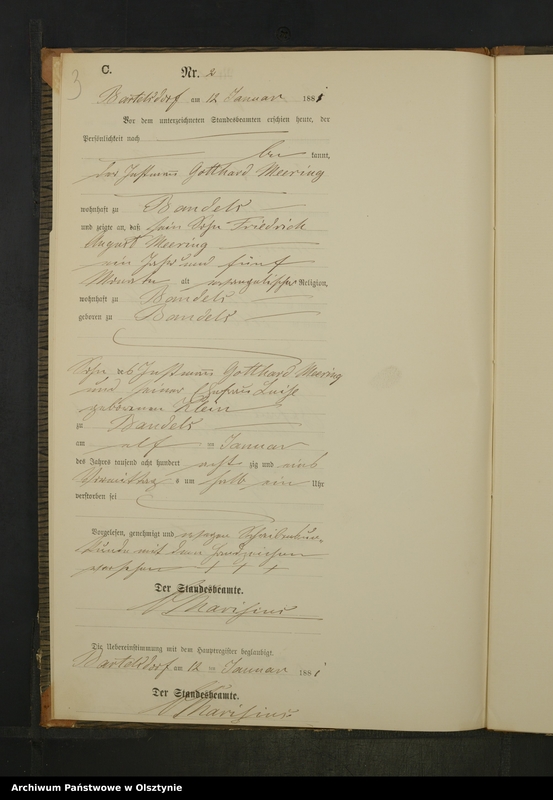 3
C.
Nr. 2
Bartelsdorf am 12 Januar 1881
Vor dem unterzeichneten Standesbeamten erschien heute, der
Persönlichkeit nach
be kannt,
der Instmann Gotthard Meering
wohnhaft zu Bandels
und zeigte an, daß sein Sohn Friedrich
August Meering
ein Jahr und fünf
Monate alt evangelischer Religion,
wohnhaft zu Bandels
geboren zu Bandels
Sohn des Instmanns Gotthard Meering
und seiner Ehefrau Luise
geborenen Klein
zu Bandels
am elf ten Januar
des Jahres tausend acht hundert acht zig und eins
Vormittags um halb ein Uhr
verstorben sei
Vorgelesen, genehmigt und wegen Schreibenun-
kunde mit dem Handzeichen
versehen + + +
Der Standesbeamte.
Die Uebereinstimmung mit dem Hauptregister beglaubigt.
Bartelsdorf am 12 ten Januar 1881
Der Standesbeamte.
Archiwum Państwowe w Olsztynie